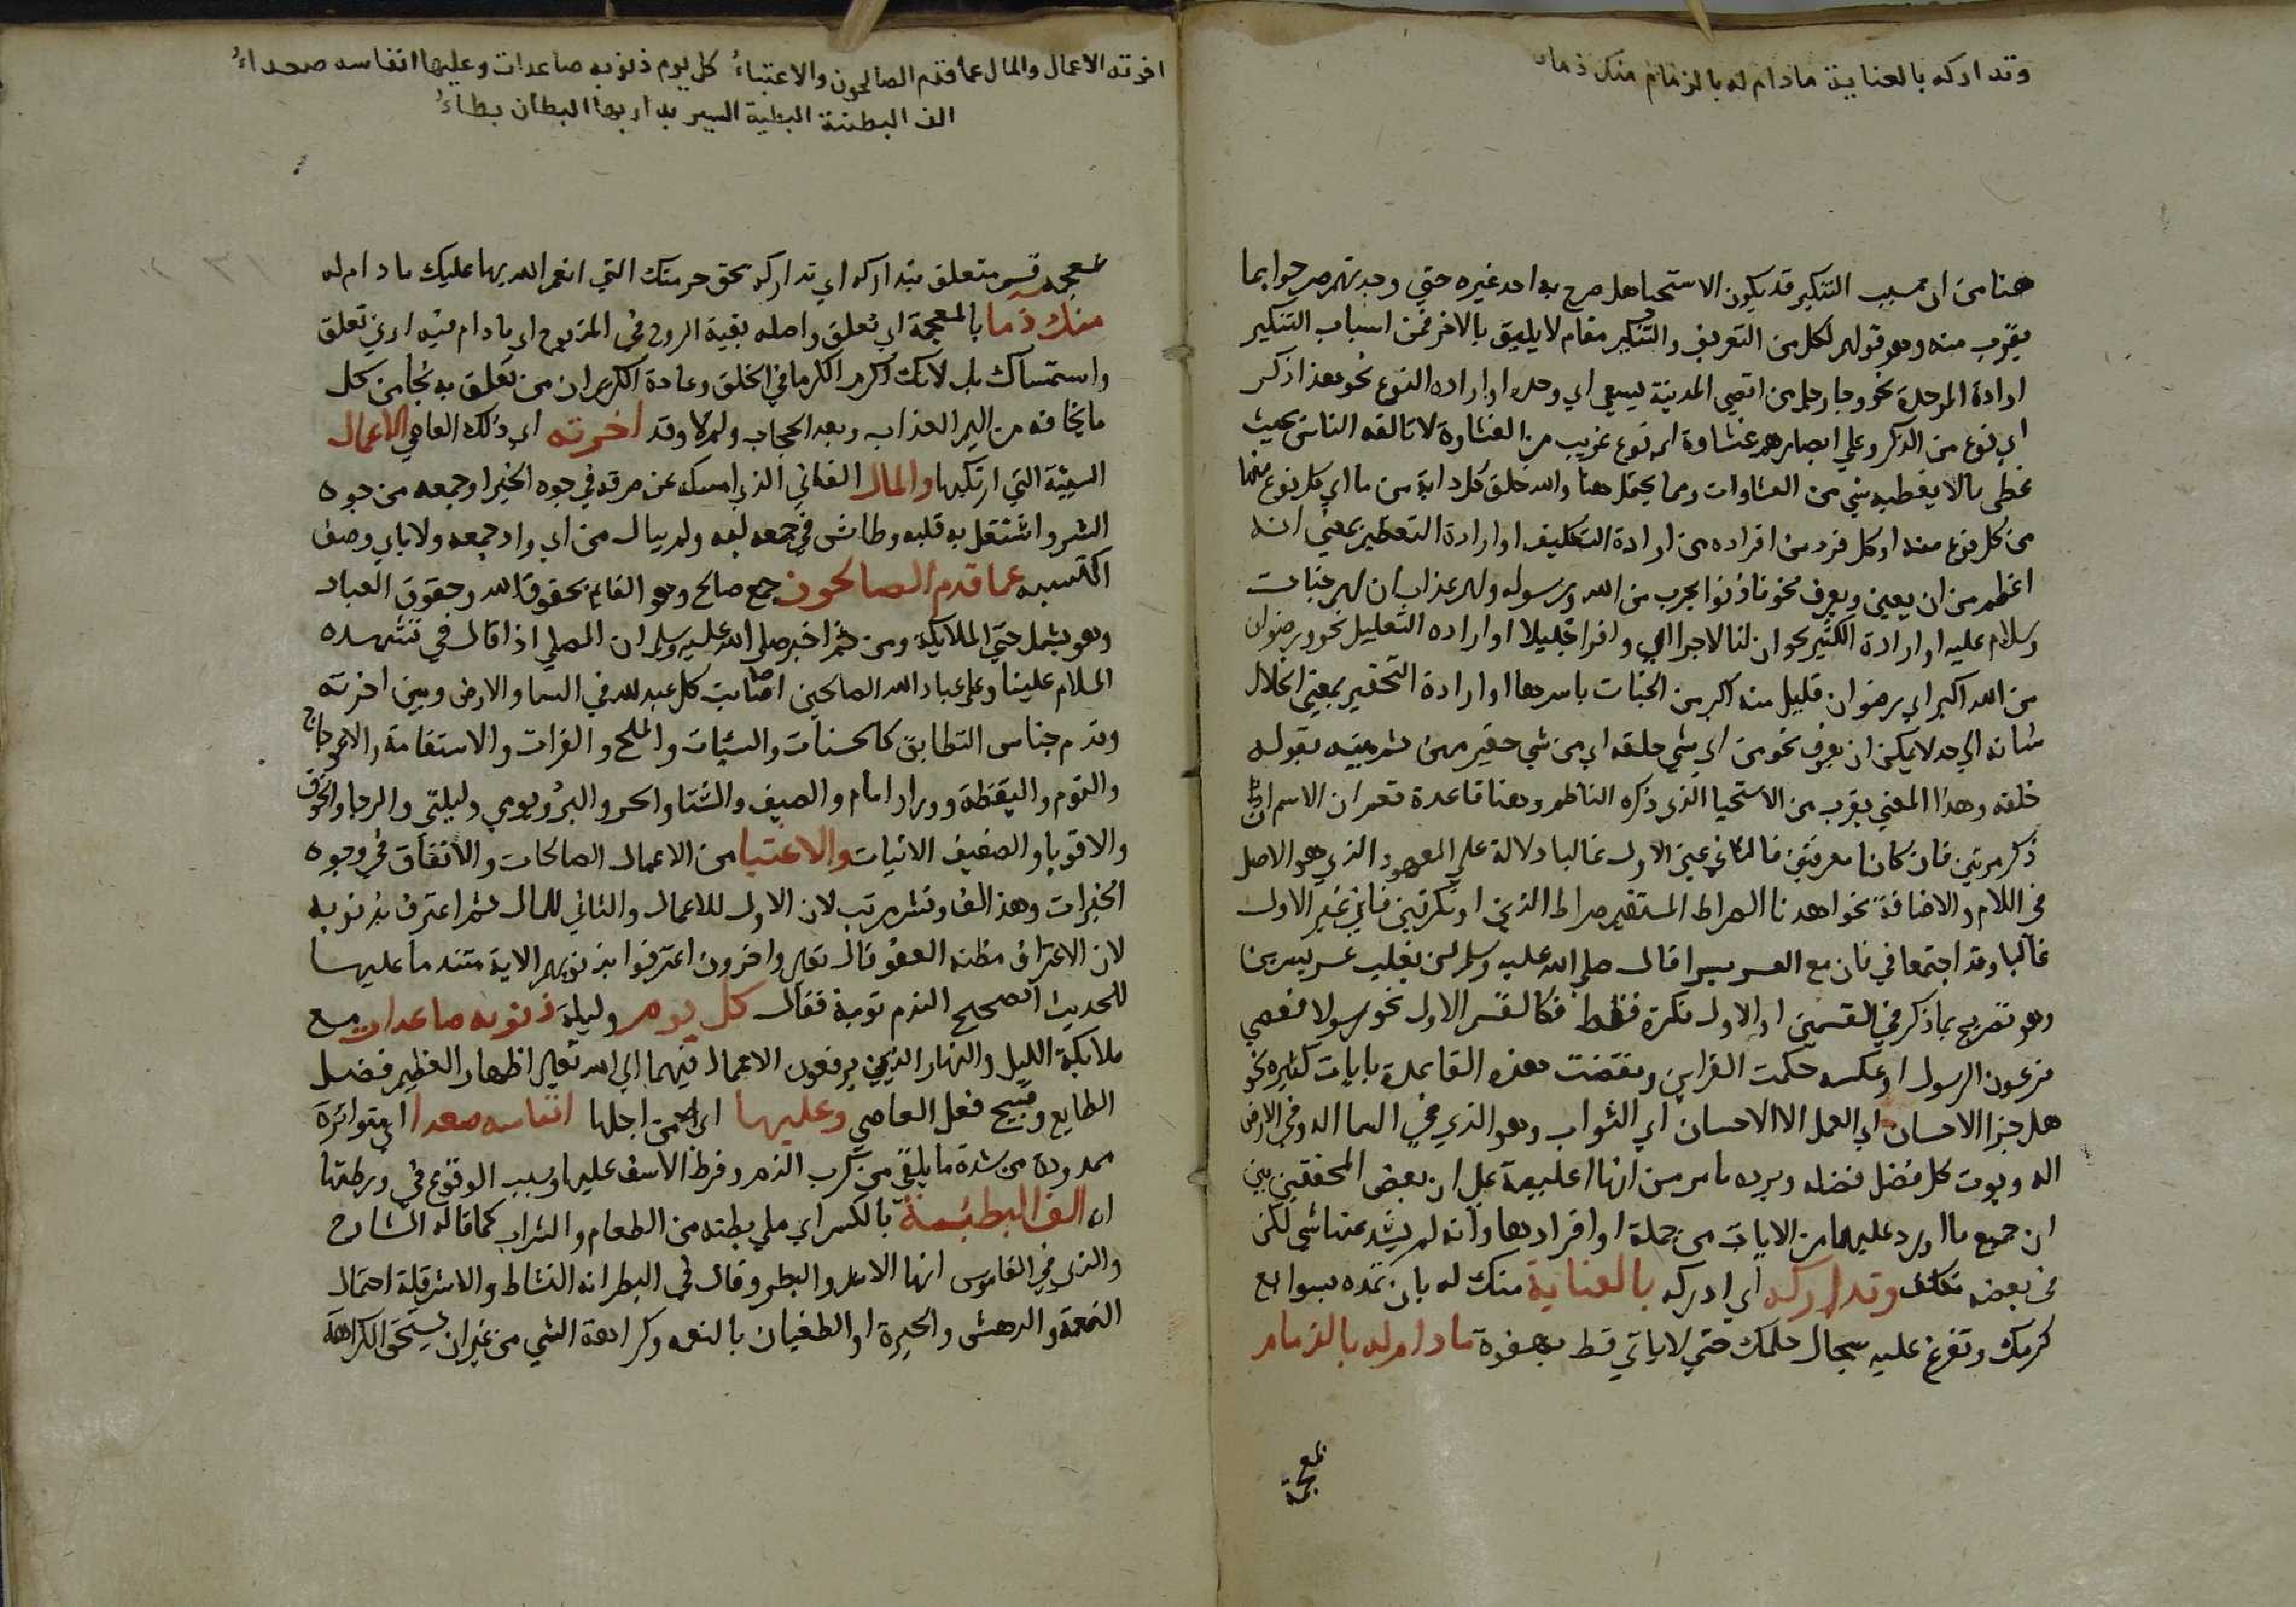 وتداركه بالعناية مادام له بالزمام منك ذماء
هنا من ان سبب التنكير قد يكون الاستحيا هل صرح به احد غيره حتي وجدتهم صرحوا بما
يقرب منه وهو قولهم لكل من التعريف والتنكير مقام لا يليق بالاخر فمن اسباب التنكير
ارادة الوحدة نحو وجا رجل من اقصي المدينة يسعي اي وحده او اراده النوع نحو هذا ذكر
اي نوع من الذكر وعلي ابصارهم غشاوة اي نوع غريب من الغشاوة لا تالفه الناس بحيث
غطي مالا يغطيه شي من الغشاوات ومما يحتملهما والله خلق كل دابة من ما اي كل نوع منها
من كل نوع منه او كل فرد من افراده من ارادة التكليف او ارادة التعظيم بمعني انه
اعظم من ان يعين ويعرف نحو فاذنوا بحرب من الله ورسوله ولهم عذاب ان لهم جنات
وسلام عليه او ارادة الكثير نحو ان لنا لاجرا اي وافرا جليلا او اراده التقليل نحو ورضوان
من الله اكبر اي رضوان قليل منه اكبر من الجنات باسرها او ارادة التحقير بمعني انحلال
شانه الي حد لا يمكن ان يعرف نحو من اي شي خلقه اي من شي حقير مهين ثم بينه بقوله
خلقه وهذا المعني يقرب من الاستحيا الذي ذكره الناظم وهنا قاعدة تعم ان الاسم اذا
ذكر مرتين فان كانا معرفتين فالثاني عين الاول غالبا دلالة علي المعهود الذي هو الاصل
في اللام والاضافة نحو اهدنا الصراط المستقيم صراط الذين او نكرتين فالثاني غير الاول
غالبا وقد اجتمعا في فان مع العسر يسرا قال صلي الله عليه وسلم لن يغلب عسر يسرين
وهو تصريح بما ذكر في القسمين او الاول نكرة فقط فكالقسم الاول نحو رسولا فعصي
فرعون الرسول او عكسه حكمت القراين ونقضت هذه القاعدة بايات كثيره نحو
هل جزا الاحسان اي العمل الا الاحسان اي الثواب وهو الذي في السما اله وفي الارض
اله ويوت كل فضل فضله ويرده ما مر من انها اغلبية علي ان بعض المحققين بين
ان جميع ما اورد عليها من الايات من جملة او افرادها وانه لم يشذ عنها شي لكن
في بعضه تكلف وتداركه اي ادركه بالعناية منك له بان تمده بسوابع
كرمك وتفرغ عليه سجال حلمك حتي لا ياتي قط بهفوة مادام له بالزمام
بمعجمة
اخرته الاعمال والمال عما قدم الصالحون والاغنياءُ كل يوم ذنوبه صاعدات وعليها انفاسه صعداءُ
الف البطنة البطية السير بدار بها البطان بطاءُ
بمعجمه قسم متعلق بتداركه اي تداركه بحق حرمتك التي انعم الله بها عليك مادام له
منك ذما بالمعجمة اي تعلق واصله بقية الروح في المذبوح اي مادام فيه ادني تعلق
واستمساك بك لانك اكرم الكرما في الخلق وعادة الكريم ان من تعلق به نجا من كل
ما يخافه من اليم العذاب وبعد الحجاب ولم لا وقد اخرته اي ذلك العاصي الاعمال
السيئة التي ارتكبها والمال الفاني الذي امسكه عن صرفه في جوه الخير او جمعه من جوه
الشر واشتغل به قلبه وطاش في جمعه لبه ولم يبال من اي واد جمعه ولا باي وصف
اكتسبه عما قدم الصالحون جمع صالح وهو القايم بحقوق الله وحقوق العباد
وهو يشمل حتي الملايكة ومن ثم اخبر صلي الله عليه وسلم ان المصلي اذا قال في تشهده
السلام علينا وعلي عباد الله الصالحين اصابت كل عبد لله في السما والارض وبين اخرته
وقدم جناس التطابق كالحسنات والسيئات والملح والفرات والاستقامة والاعوجاج
والنوم واليقظة وورا وامام والصيف والشتا والحر والبرد ويومي وليلتي والرجا والخوف
والاقويا والضعيف الاتيات والاغنيا من الاعمال الصالحات والانفاق في وجوه
الخيرات وهذا لف ونشر مرتب لان الاول للاعمال والثاني للمال ثم اعترف بذنوبه
لان الاعتراف مظنه العفو قال تعالي واخرون اعترفوا بذنوبهم الاية متندما عليها
للحديث الصحيح الندم توبة فقال كل يوم وليلة ذنوبه صاعدات مع
ملايكة الليل والنهار الذين يرفعون الاعمال فيهما الي الله تعالي اظهار العظيم فضل
الطايع وقبيح فعل العاصي وعليها اي من اجلها انفاسه صعدا اي متواترة
ممدودة من شدة ما يلقي من كرب الندم وفرط الاسف عليها وسبب الوقوع في ورطتها
انه الف البطنة بالكسر اي ملي بطنه من الطعام والشراب كما قاله الشارح
والذي في القاموس انها الاشر والبطر وقال في البطر انه النشاط والاشر قلة احتمال
النعمة والدهش والحيرة او الطغيان بالنعمه وكراهة الشي من غير ان يستحق الكراهة